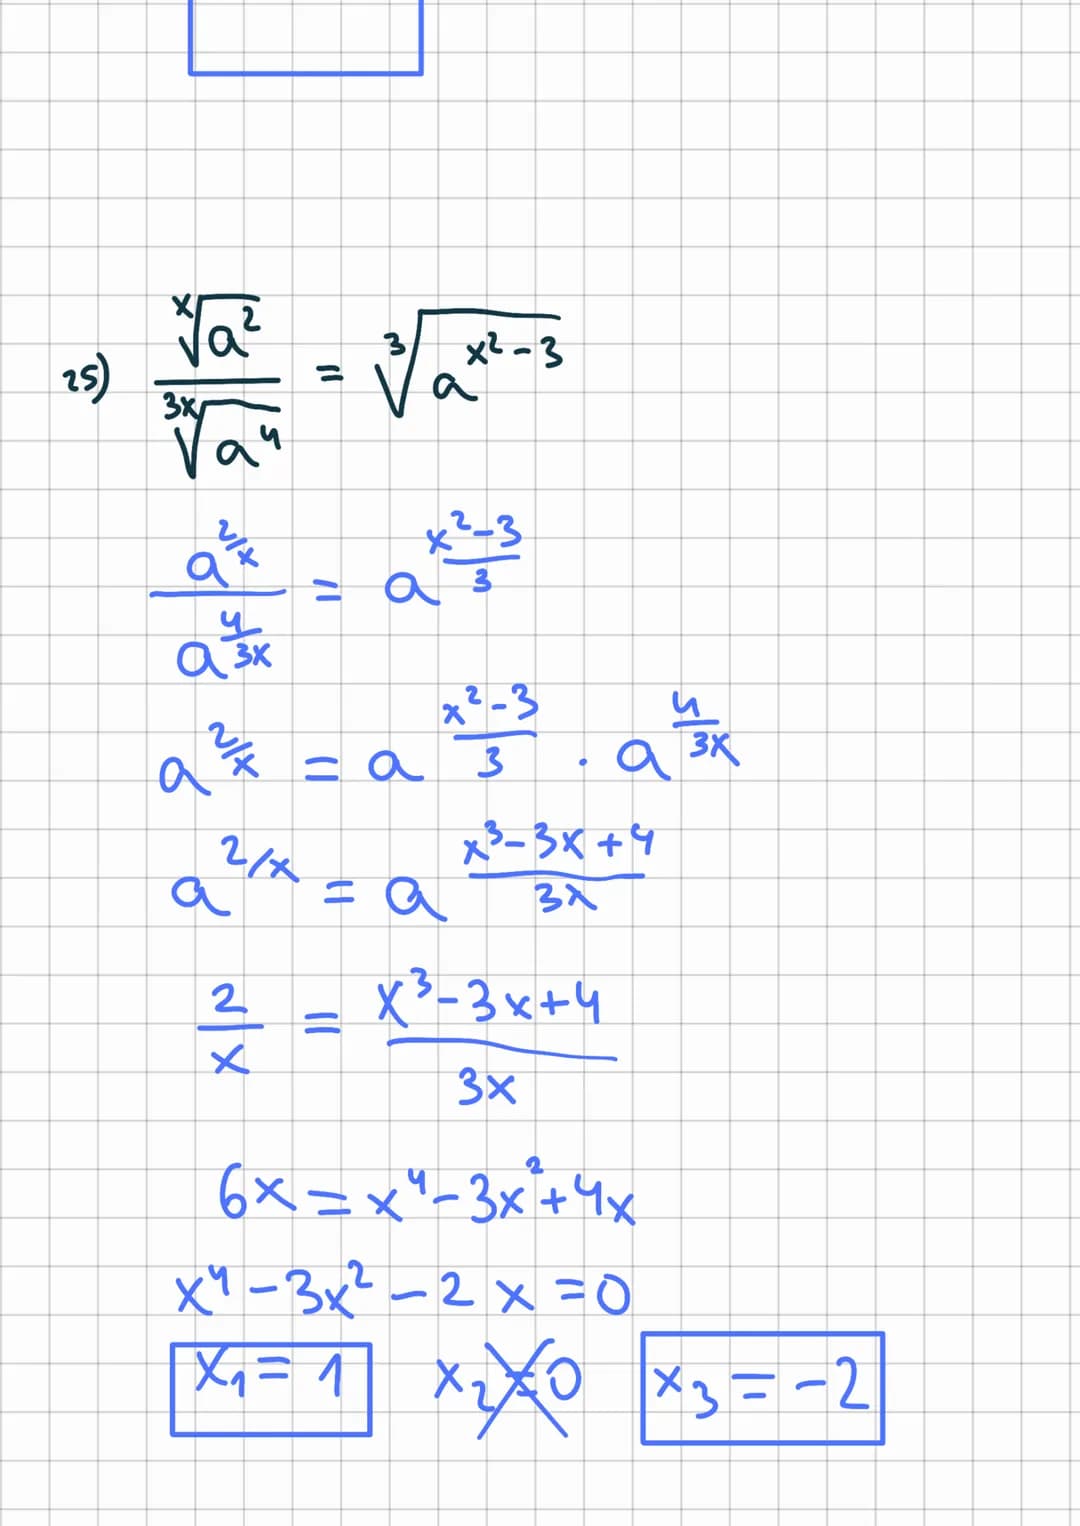 25) \frac{\sqrt[x]{a^2}}{\sqrt[3x]{a^4}} = \sqrt[3]{a^{x^2-3}}
\frac{a^{\frac{2}{x}}}{a^{\frac{4}{3x}}} = a^{\frac{x^2-3}{3}}
a^{\frac{2}{x}} = a^{\frac{x^2-3}{3}} \cdot a^{\frac{4}{3x}}
a^{2/x} = a^{\frac{x^3-3x+4}{3x}}
\frac{2}{x} = \frac{x^3-3x+4}{3x}
6x = x^4-3x^2+4x
x^4-3x^2-2x=0
x_1=1 x_2=0 x_3=-2